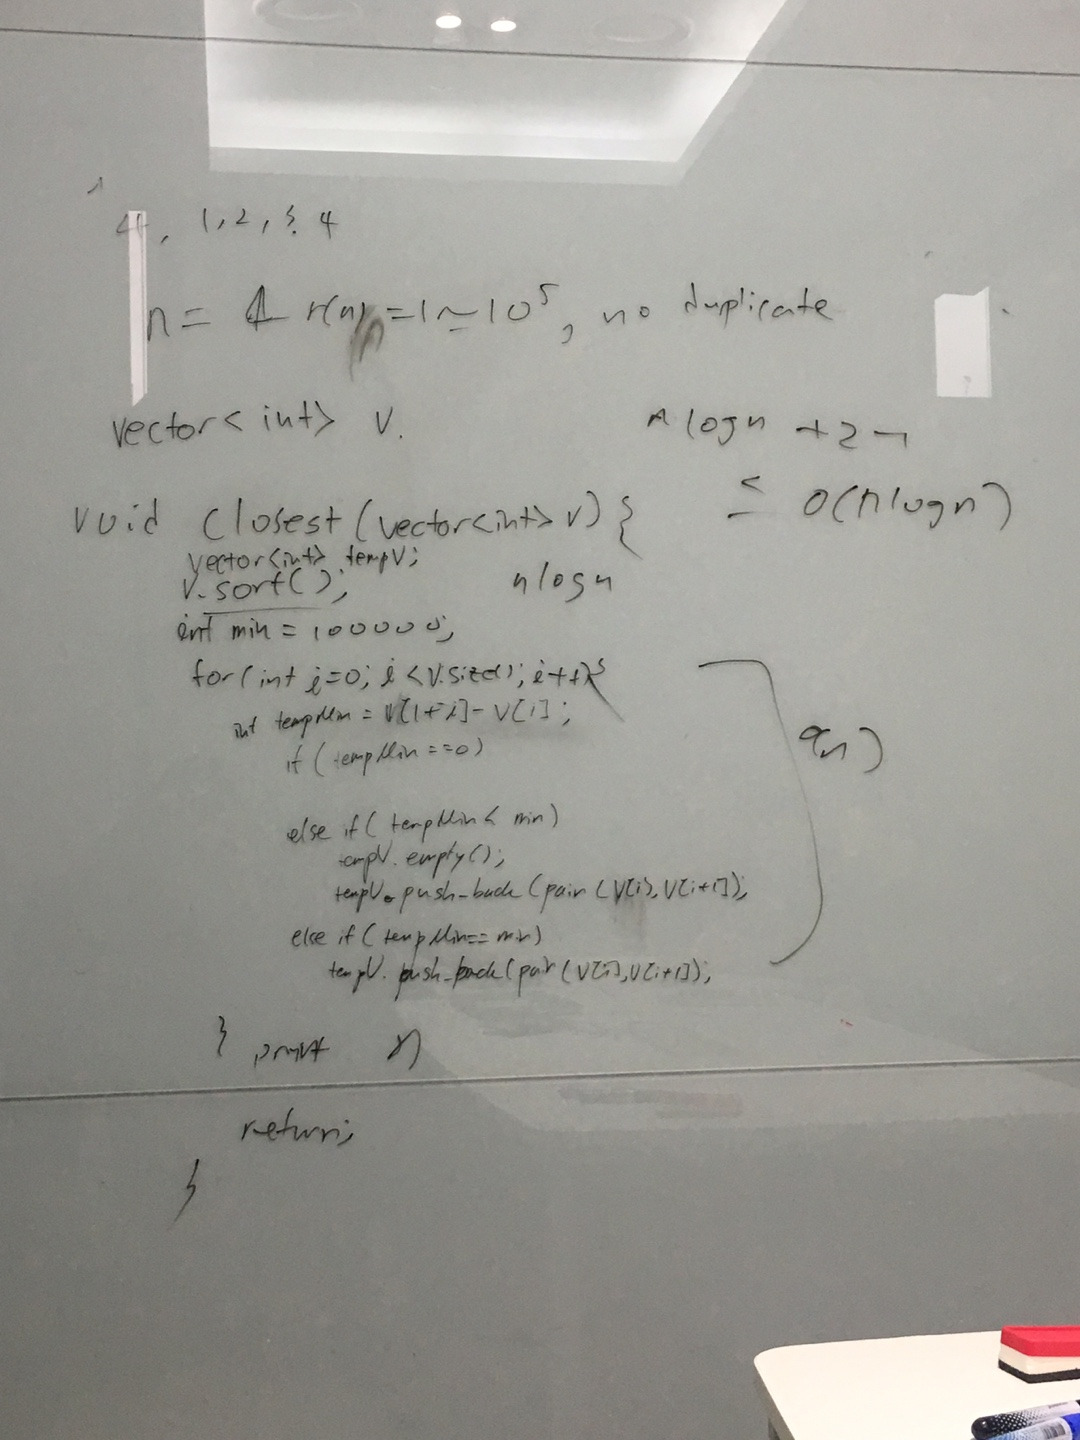 4, 1, 2, 3, 4
n = r(n) = 1 ~ 10^5, no duplicate
vector<int> v.
n log n + 2n
≤ O(n log n)
void closest(vector<int> v) {
vector<int> tempV;
v.sort();
n log n
int min = 100000;
for(int i=0; i<v.size(); i++){
int tempMin = v[1+i] - v[i];
if (tempMin == 0)
O(n)
else if (tempMin < min)
tempV.empty();
tempV.push_back(pair(v[i], v[i+1]);
else if (tempMin == min)
tempV.push_back(pair(v[i], v[i+1]);
} print
return;
}